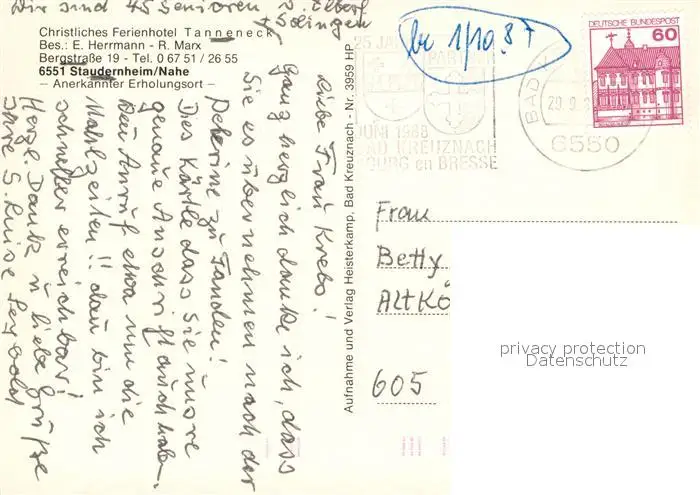 Wir sind 45 Senioren v. Elberf
+ Solingen
Christliches Ferienhotel Tanneneck
Bes.: E. Herrmann - R. Marx
Bergstraße 19 - Tel. 0 67 51 / 26 55
6551 Staudernheim/Nahe
– Anerkannter Erholungsort –
Liebe Frau Krebs!
Ganz herzlich danke ich, dass
Sie es übernehmen nach der
Pelerine zu fanden!
Dies Kärtle dass Sie unsre
genaue Anschrift auch haben.
Den Anruf etwa um die
Mahlzeiten!! dan bin ich
schneller erreichbar!
Herzl. Dank u liebe Grüße
Ihre S. Luise Seybold
Aufnahme und Verlag Heisterkamp, Bad Kreuznach - Nr. 3959 HP
be 1/10.87
25 JA
PARTNER
JUNI 1988
BAD KREUZNACH
BOURG en BRESSE
BAD
29.9.8
6550
DEUTSCHE BUNDESPOST
60
Frau
Betty
Altkö
605
privacy protection
Datenschutz